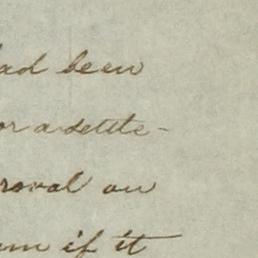 had been
for a settle-
roval an
um if it